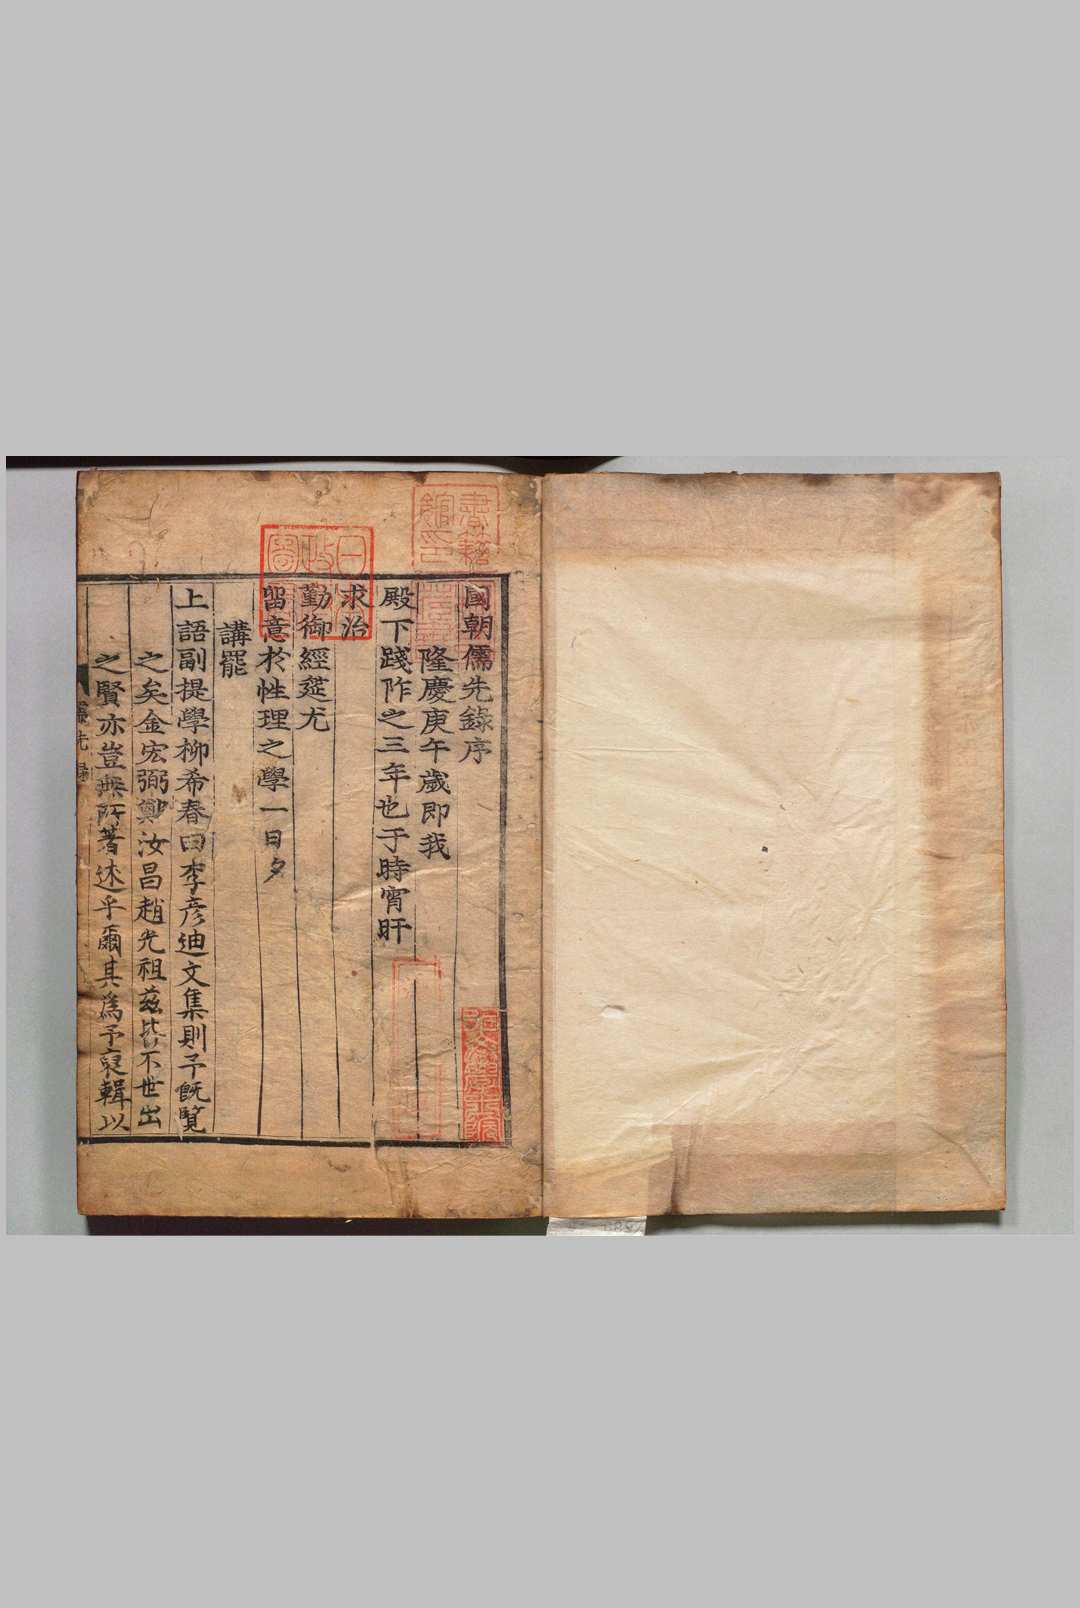 國朝儒先錄序
隆慶庚午歲即我
殿下踐阼之三年也于時宵旰
求治
勤御經筵尤
留意於性理之學一日夕
講罷
上語副提學柳希春曰李彦迪文集則予旣覽
之矣金宏弼鄭汝昌趙光祖玆皆不世出
之賢亦豈無所著述乎爾其爲予裒輯以